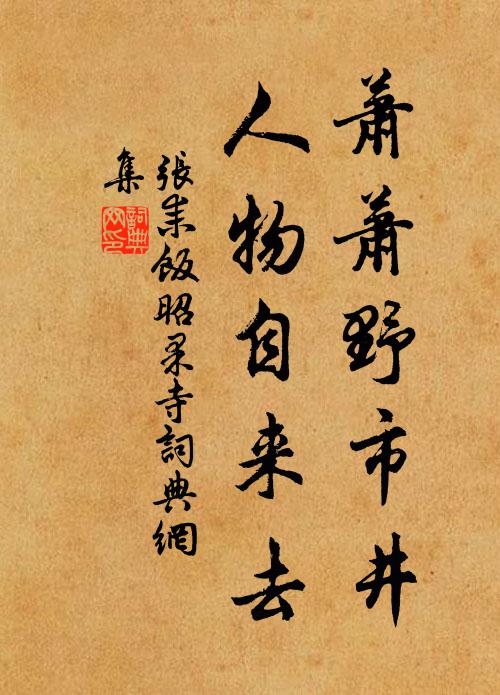 蕭蕭野市井
人物自来去
張耒飯昭果寺詞典網
集
詞典
网印